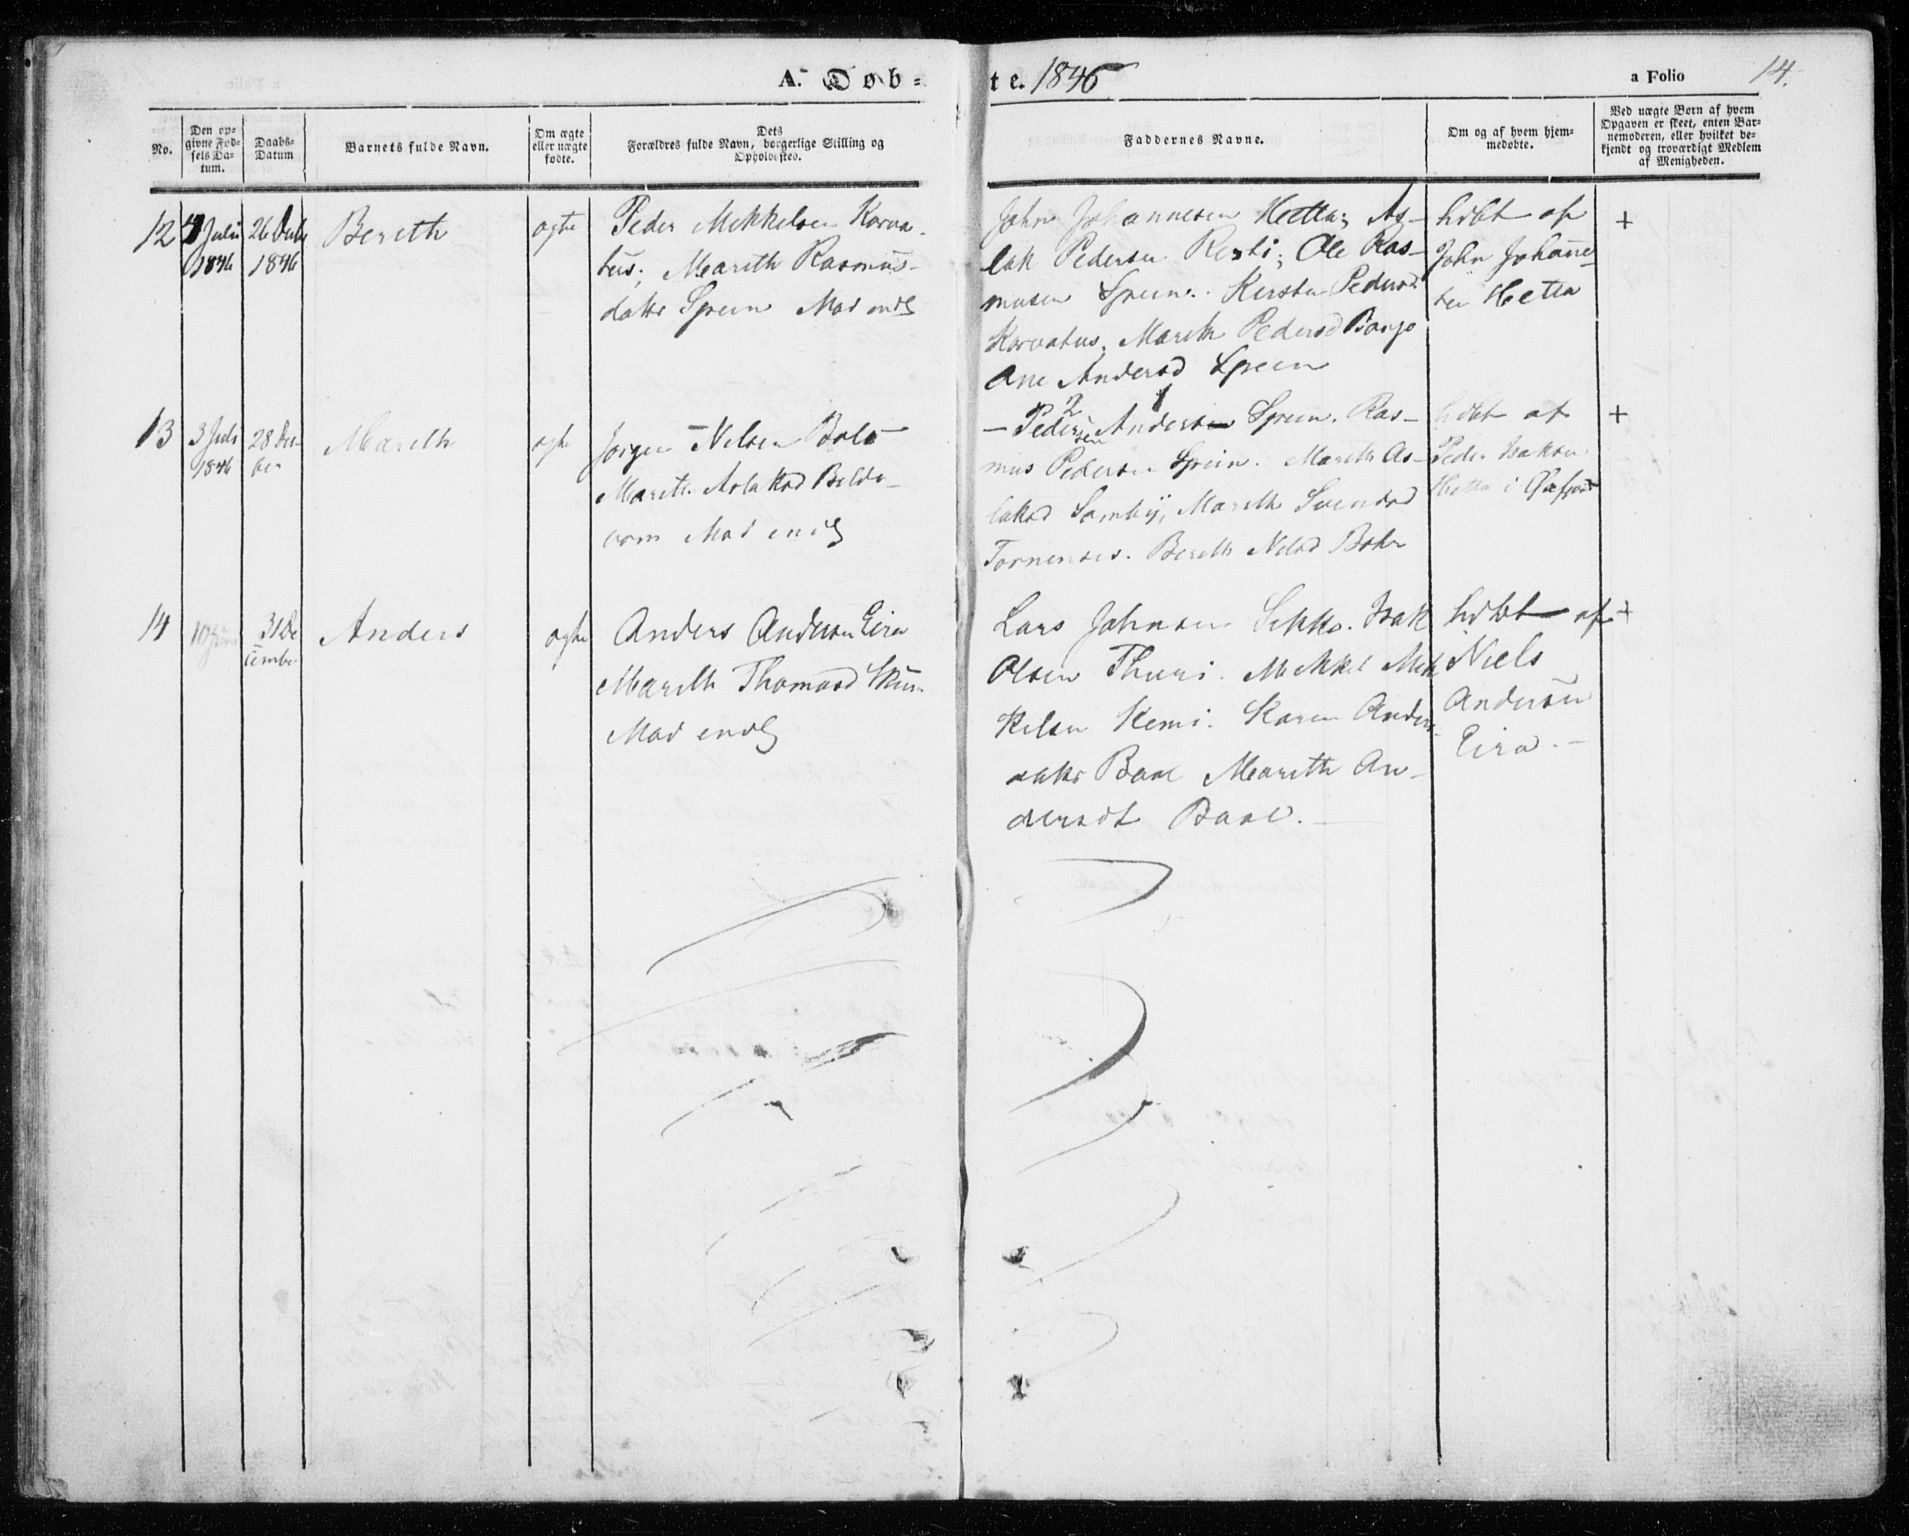 A. Døb-
te. 1846
a Folio 14.
No.
Den op-
givne Fød-
sels Da-
tum.
Daabs-
Datum
Barnets fulde Navn.
Om ægte
eller uægte
fødte.
Dets
Forældres fulde Navn, borgerlige Stilling og
Opholdssted.
Faddernes Navne.
Om og af hvem hjem-
medøbte.
Ved uægte Børn af hvem
Opgaven er skeet, enten Bar-
nemoderen, eller hvilket be-
kjendt og troværdigt Medlem
af Menigheden.
12
Juli
1846
26
1846
Bereth
ægte
Peder Mikkelsen Korva-
tus. Mareth Rasmus-
datter Spein
John Johannesen Hetta; As-
lak Pedersen Risti; Ole Ras-
musen Spein. Kirsten Pedersd
Korvatus. Mareth Pedersd Banjo
Ane Andersd Spein
hdbt af
John Johanne-
sen Hetta
+
13
3 Juli
1846
28 De-
ber
Mareth
ægte
Jørgen Nilsen
Mareth Aslaksd
- Peder Andersen Spein. Ras-
mus Pedersen Spein. Mareth As-
laksd Somby, Mareth Svendsd
Tornensis. Bereth Nilsd
hdbt af
Peder Isaksen
Hetta i
+
14
31 De
cember
Anders
ægte
Anders Andersen Eira
Mareth Thomasd
Lars Johnsen Sikko. Isak
Olsen Thuri. Mikkel Mik
kelsen Kemi. Karen Anders-
datter Baal Mareth An-
dersdt Baal.
hdbt af
Niels
Andersen
Eira.
+